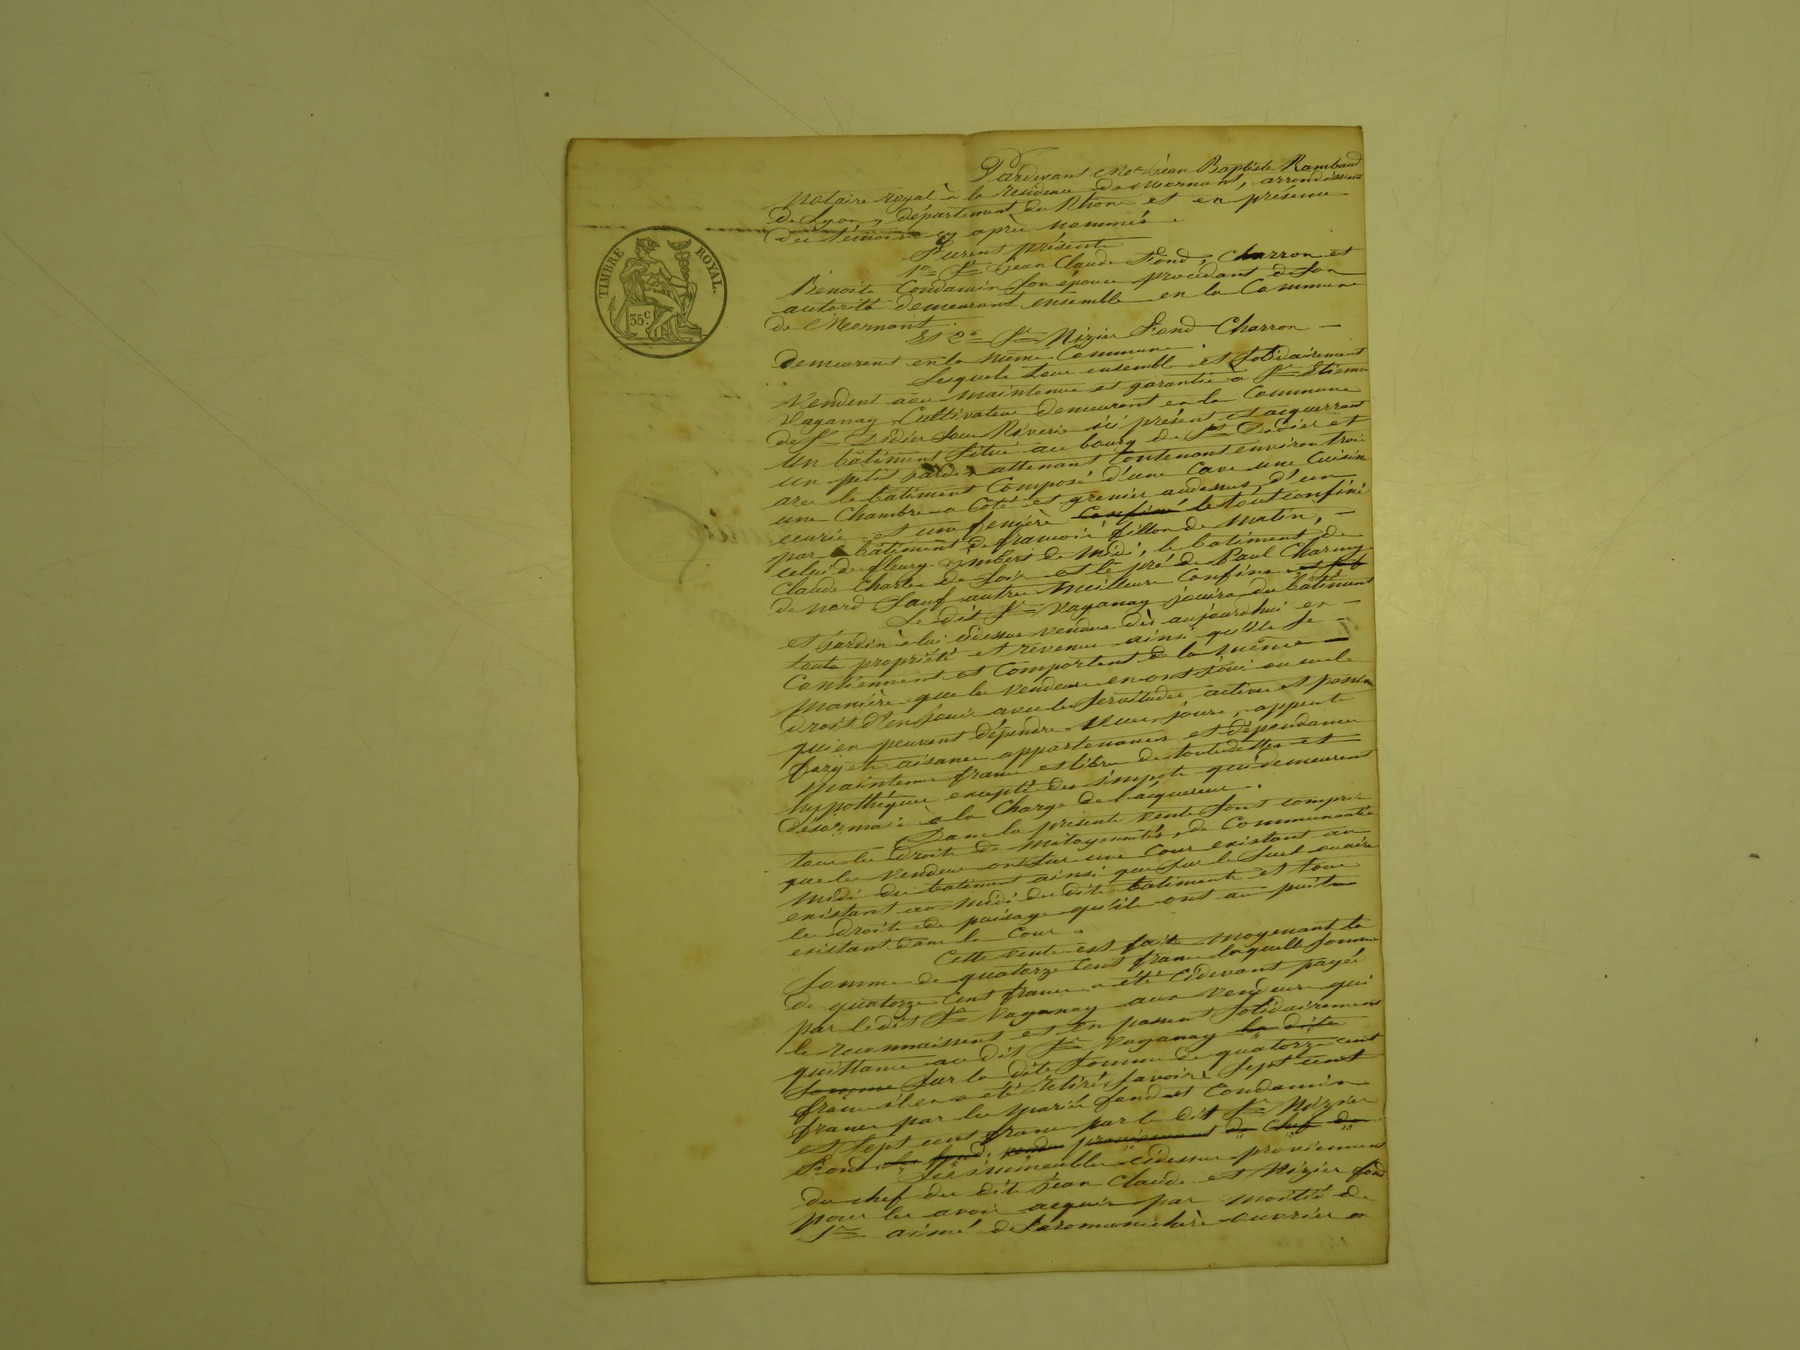 Pardevant Me. Jean Baptiste Rambaud
notaire royal à la résidence de Mornant, arrondissement
de Lyon, département du Rhône et en présence
des témoins cy après nommés.
Furent présents
1o. Sr. Jean Claude Fond, Charron et
Benoite Condamin son épouse procédant de son
autorité demeurant ensemble en la Commune
de Mornant.
Et 2o. Sr. Nizier Fond Charron
demeurent en la même Commune.
Lesquels tous ensemble et solidairement
Vendent avec maintenue et garantie à Sr. Etienne
Vaganay Cultivateur demeurant en la Commune
de St. Didier sous Riverie ici présent et acquerrant
Un bâtiment situé au bourg de St. Didier et
un petit jardin attenant Contenant environ trois
ares le bâtiment Composé d'une Cave une Cuisine
une Chambre a Côté et grenier audessus, d'un
écurie et une fenière Confiné le tout confiné
par le bâtiment de francois fillon de Matin,
celui de fleury Imbert de Midi, le batiment de
Claude Charles de Soir et le pré de Paul Charmy
de nord Sauf autres meilleurs Confins
Le dit Sr. Vaganay jouira du bâtiment
et jardin à lui cidessus vendus dès aujourd'hui en
toute propriété et revenu ainsi qu'ils se
Contiennent et Comportent de la même
manière que les vendeurs en ont joui ou eu le
droit d'en jouir avec les servitudes actives et passives
qui en peuvent dépendre Vues, jours, appents
forgets aisances appartenances et dépendances
maintenu francs et libres de toutes dettes et
hypothéques excepté des impots qui demeurent
désormais à la Charge de l'acquereur.
Dans la présente vente sont compris
tous les droits de mitoyennetés, de Communautés
que les vendeurs ont sur une Cour existant au
midi du batiment ainsi que sur le Suel ou aire
existant au midi du dits batiments et tous
les droits de puisage qu'ils ont au puits
existant dans la Cour.
Cette vente est faite moyenant la
somme de quatorze Cent francs laquelle somme
de quatorze Cent francs a été cidevant payée
par ledit Sr. Vaganay aux Vendeurs qui
le reconnaissent et en passent solidairement
quittance au dit Sr. Vaganay la dite
somme sur la dite somme de quatorze cent
francs il en a été retiré, savoir: Sept cent
francs par les mariés fond et Condamin
et sept cent francs par le dit Sr. Nizier
Fond provienment du Chef de
Les immeubles cidessus proviennent
du chef du dits Jean Claude et Nizier fond
pour les avoir acquis par moitié de
Sr. aimé ouvrier
TIMBRE ROYAL.
35c.